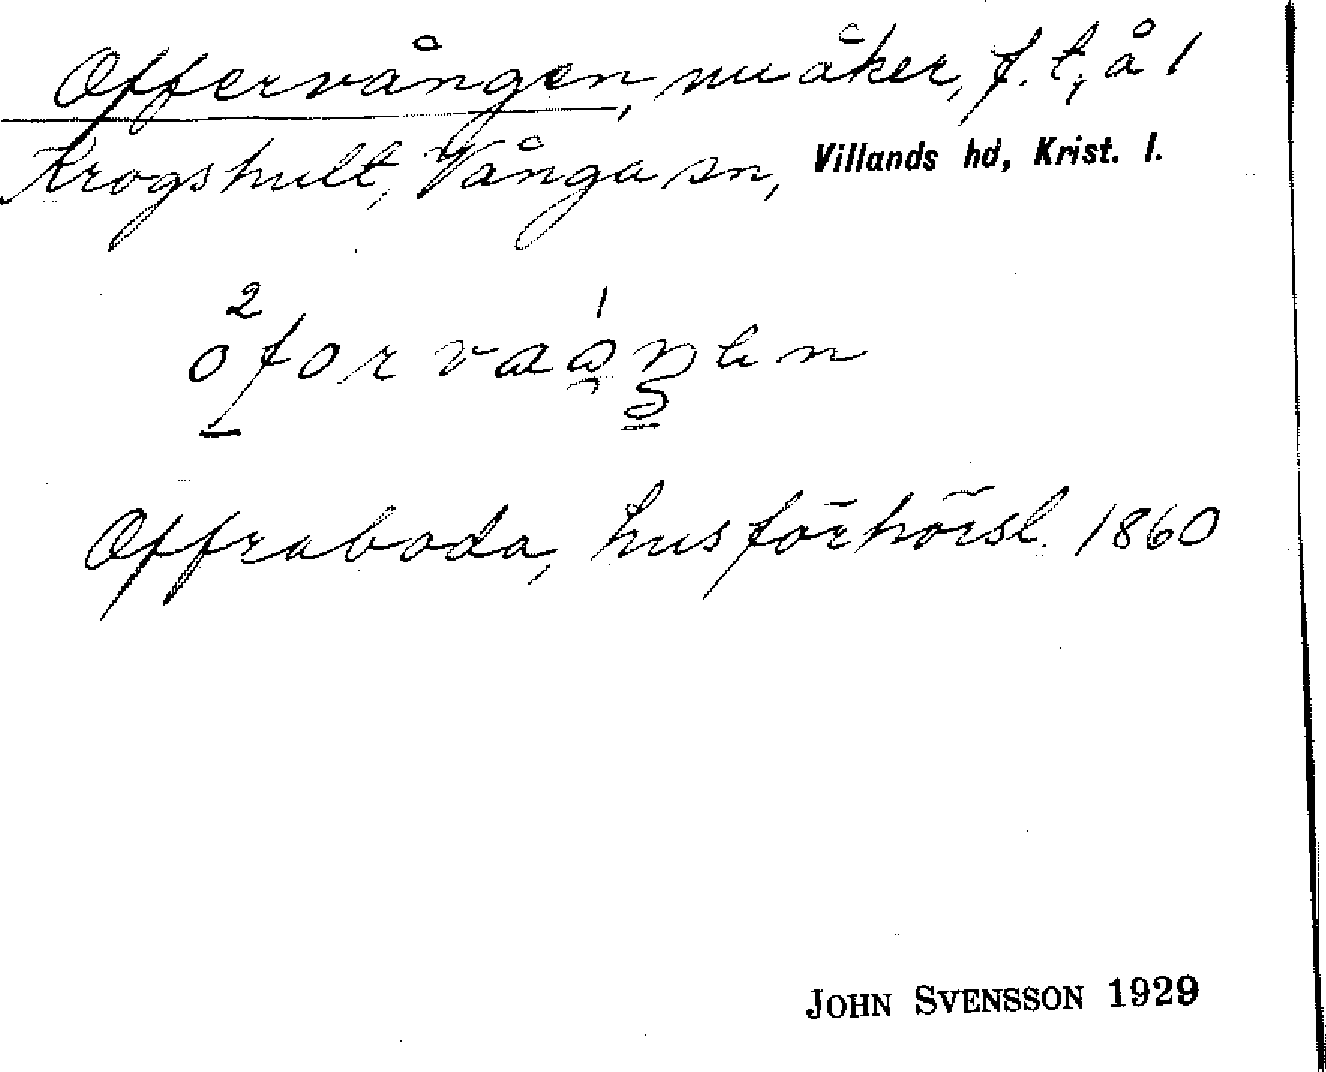 Offervången, nu åker, f. t, å 1
Krogshult, Vånga sn, Villands hd, Krist. l.
Offraboda, husförhörsl. 1860
JOHN SVENSSON 1929